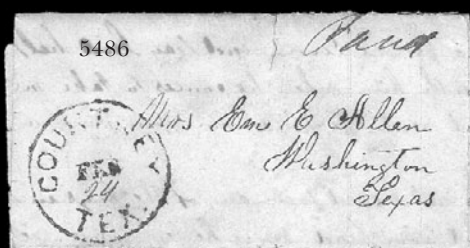 5486
Paid
Mrs Em E Allen
Washington
Texas
COURTNEY
FEB
24
TEX.